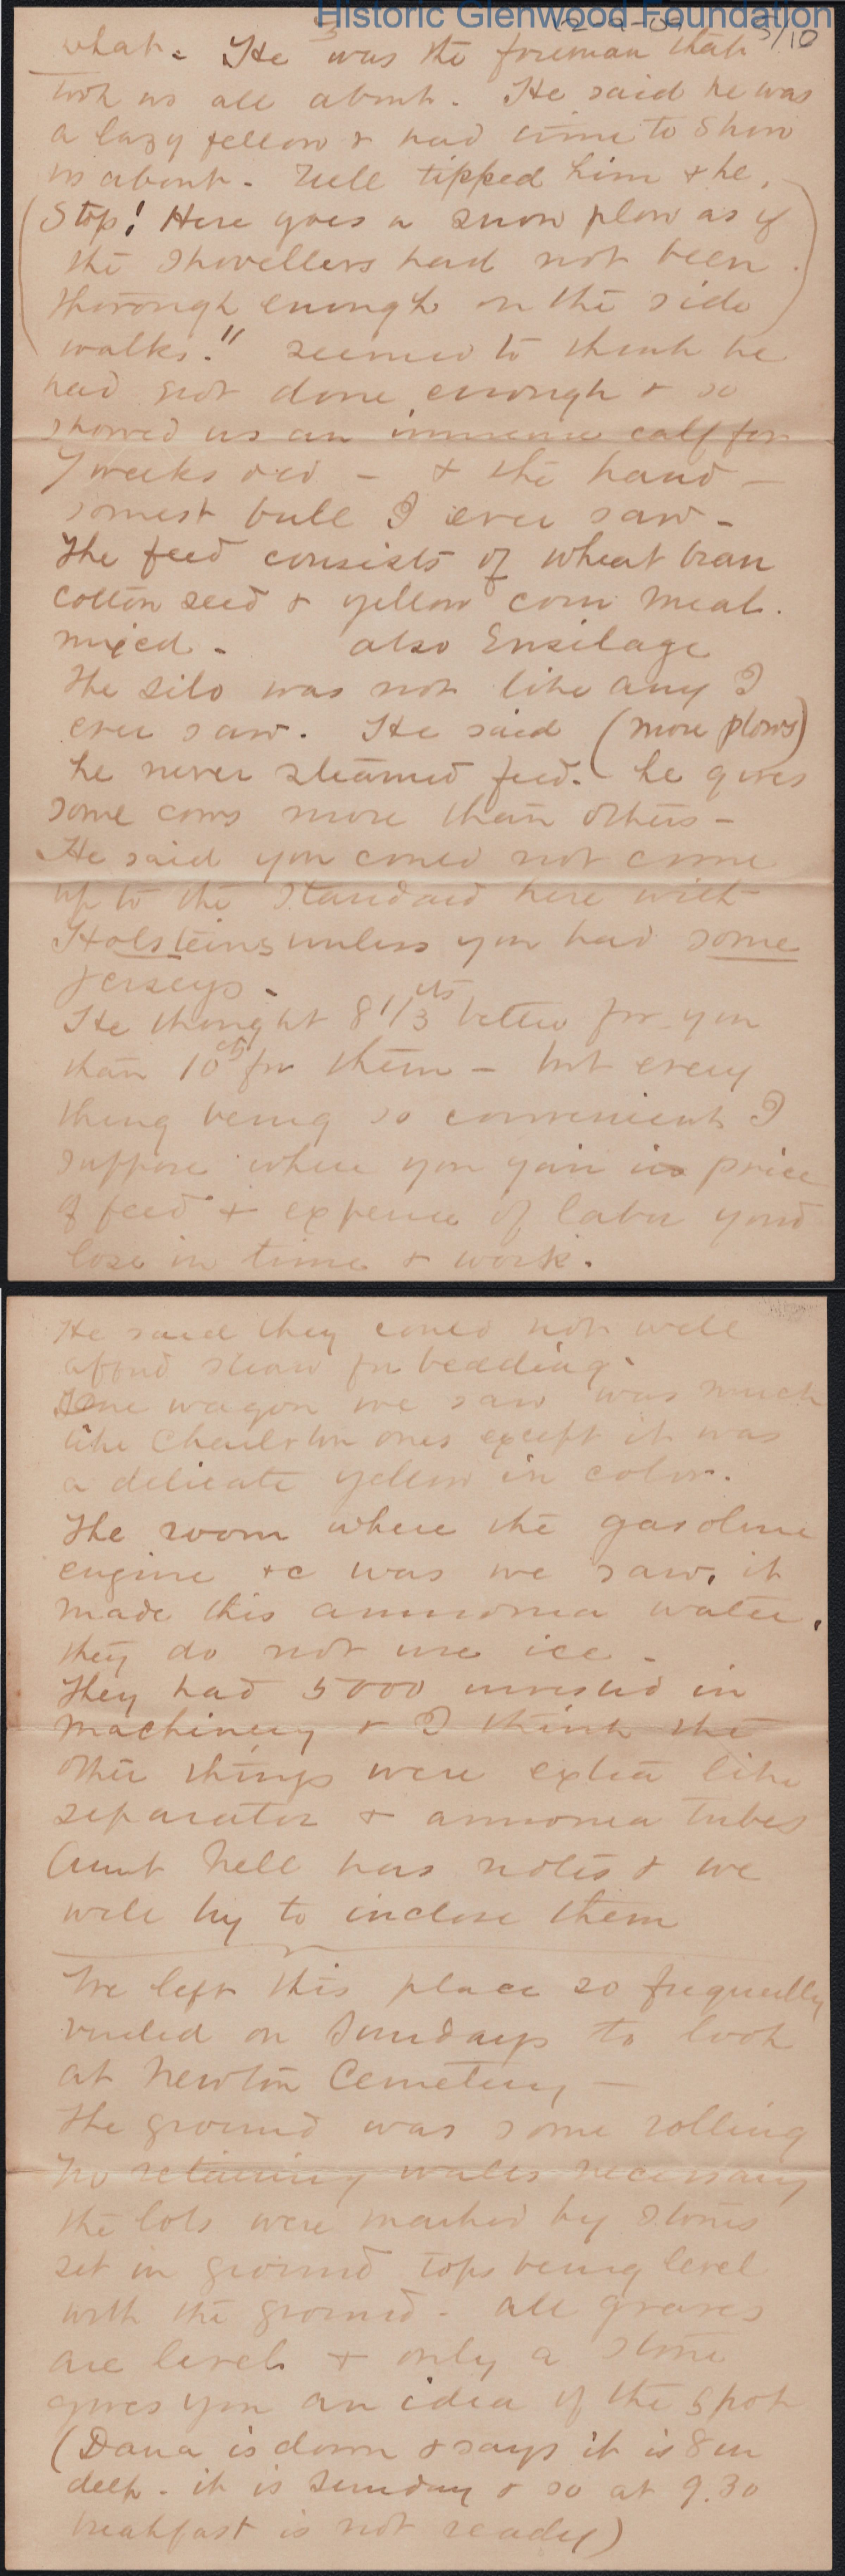 Historic Glenwood Foundation
12-9-04 3/10
3
what. He was the foreman that
took us all about. He said he was
a lazy fellow & had time to show
us about. Nell tipped him & he,
(Stop! Here goes a snow plow as if
the shovellers had not been
thorough enough on the side
walks.") seemed to think he
had not done enough & so
showed us an immense calf for
7 weeks old - & the hand-
somest bull I ever saw -
The feed consists of wheat bran
cotton seed & yellow corn meal.
mixed - also Ensilage
The silo was not like any I
ever saw. He said (more plows)
he never steamed feed. he gives
some cows more than others -
He said you could not come
up to the standard here with
Holsteins unless you had some
Jerseys.
He thought 8 1/3 cts better for you
than 10 cts for them - but every
thing being so convenient I
suppose where you gain in price
of feed & expense of labor you'd
lose in time & work.
He said they could not well
afford straw for bedding.
One wagon we saw was much
like Charlston ones except it was
a delicate yellow in color.
The room where the gasoline
engine &c was we saw, it
made this ammonia water,
they do not use ice -
They had 5000 invested in
machinery & I think the
other things were extra like
separator & ammonia tubes
Aunt Nell has notes & we
will try to inclose them
We left this place so frequently
visited on Sundays to look
at Newton Cemetery -
The ground was some rolling
no retaining walls necessary
the lots were marked by stones
set in ground tops being level
with the ground - all graves
are level & only a stone
gives you an idea of the spot
(Dana is down & says it is 8 in
deep - it is Sunday & so at 9.30
breakfast is not ready)